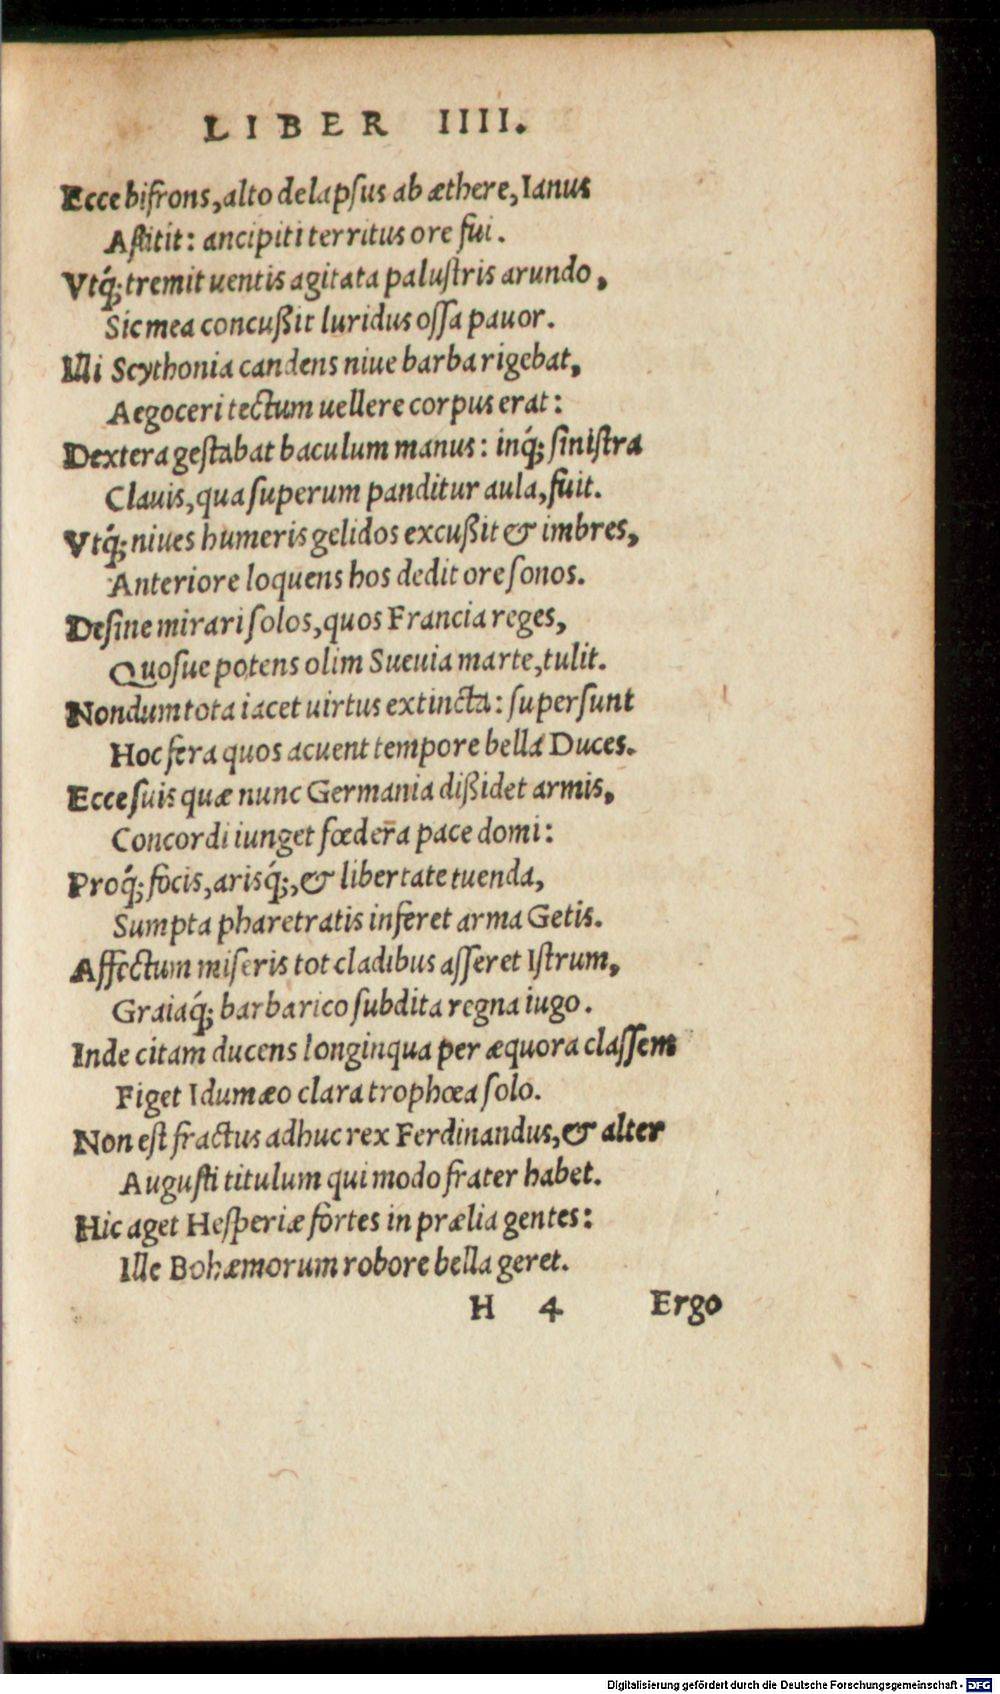 LIBER IIII.
Ecce bifrons, alto delapsus ab æthere, Ianus
Astitit: ancipiti territus ore fui.
Vtq́; tremit uentis agitata palustris arundo,
Sic mea concußit luridus ossa pauor.
Illi Scythonia candens niue barba rigebat,
Aegoceri tectum uellere corpus erat:
Dextera gestabat baculum manus: inq́; sinistra
Clauis, qua superum panditur aula, fuit.
Vtq́; niues humeris gelidos excußit & imbres,
Anteriore loquens hos dedit ore sonos.
Desine mirari solos, quos Francia reges,
Quosue potens olim Sueuia marte, tulit.
Nondum tota iacet uirtus extincta: supersunt
Hoc fera quos acuent tempore bella Duces.
Ecce suis quæ nunc Germania dißidet armis,
Concordi iunget fœdera pace domi:
Proq́; focis, arisq́;, & libertate tuenda,
Sumpta pharetratis inferet arma Getis.
Affectum miseris tot cladibus asseret Istrum,
Graiaq́; barbarico subdita regna iugo.
Inde citam ducens longinqua per æquora classem
Figet Idumæo clara trophœa solo.
Non est fractus adhuc rex Ferdinandus, & alter
Augusti titulum qui modo frater habet.
Hic aget Hesperiæ fortes in prælia gentes:
Ille Bohæmorum robore bella geret.
H 4 Ergo
Digitalisierung gefördert durch die Deutsche Forschungsgemeinschaft - DFG